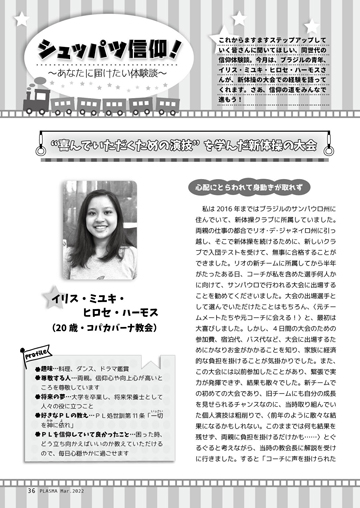 シュッパツ信仰！
〜あなたに届けたい体験談〜
これからますますステップアップして
いく皆さんに聞いてほしい、同世代の
信仰体験談。今月は、ブラジルの青年、
イリス・ミユキ・ヒロセ・ハーモスさ
んが、新体操の大会での経験を語って
くれます。さあ、信仰の道をみんなで
進もう！
“喜んでいただくための演技” を学んだ新体操の大会
心配にとらわれて身動きが取れず
私は 2016 年まではブラジルのサンパウロ州に
住んでいて、新体操クラブに所属していました。
両親の仕事の都合でリオ・デ・ジャネイロ州に引っ
越し、そこで新体操を続けるために、新しいクラ
ブで入団テストを受けて、無事に合格することが
できました。リオの新チームに所属してから半年
がたったある日、コーチが私を含めた選手何人か
に向けて、サンパウロで行われる大会に出場する
ことを勧めてくださいました。大会の出場選手と
して選んでいただけたことはもちろん、〈元チー
ムメートたちや元コーチに会える！〉と、最初は
大喜びしました。しかし、４日間の大会のための
参加費、宿泊代、バス代など、大会に出場するた
めにかなりお金がかかることを知り、家族に経済
的な負担を掛けることが気掛かりでした。また、
この大会には以前参加したことがあり、緊張で実
力が発揮できず、結果も散々でした。新チームで
の初めての大会であり、旧チームにも自分の成長
を見せられるチャンスなのに、当時取り組んでい
た個人演技は粗削りで、〈前年のように散々な結
果になるかもしれない。このままでは何も結果を
残せず、両親に負担を掛けるだけかも……〉とぐ
るぐると考えながら、当時の教会長に解説を受け
に行きました。すると「コーチに声を掛けられた
イリス・ミユキ・
ヒロセ・ハーモス
（20 歳・コパカバーナ教会）
Profile
●趣味…料理、ダンス、ドラマ鑑賞
●尊敬する人…両親。信仰心や向上心が高いと
ころを尊敬しています
●将来の夢…大学を卒業し、将来栄養士として
人々の役に立つこと
●好きなＰＬの教え…ＰＬ処世訓第 11 条「一切
を神に依れ」
●ＰＬを信仰していて良かったこと…困った時、
どう立ち向かえばいいのか教えていただける
ので、毎日心穏やかに過ごせます
36 PLASMA Mar.2022